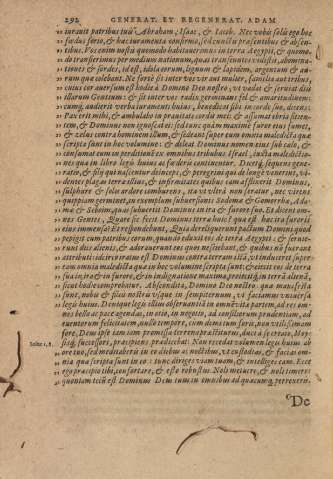 292 GENERAT. ET REGENERAT. ADAM
iurauit patribus tuis, Abraham, Isaac, & Iacob. Nec vobis solis ego hoc
fœdus ferio, & hæc iuramenta confirmo, sed cunctis præsentibus & absen-
tibus. Vos enim nostis quomodo habitauerimus in terra Aegypti, & quomo-
do transierimus per medium nationum, quas transeuntes vidistis, abomina-
tiones & sordes, id est, idola eorum, lignum & lapidem, argentum & au-
rum quæ colebant. Ne forte sit inter vos vir aut mulier, familia aut tribus,
cuius cor auersum est hodie à Domino Deo nostro, vt vadat & seruiat diis
illarum Gentium: & sit inter vos radix germinans fel & amaritudinem:
cumq́; audierit verba iuramenti huius, benedicat sibi in corde suo, dicens:
Pax erit mihi, & ambulabo in prauitate cordis mei: & assumat ebria sitien-
tem, & Dominus non ignoscat ei: sed tunc quàm maxime furor eius fumet,
& zelus contra hominem illum, & sedeant super eum omnia maledicta quæ
scripta sunt in hoc volumine: & deleat Dominus nomen eius sub cælo, &
consumat eum in perditionem ex omnibus tribubus Israel, iuxta maledictio-
nes quæ in libro legis huius ac fœderis continentur. Dicetq́; sequens gene-
ratio, & filij qui nascentur deinceps, & peregrini qui de longè venerint, vi-
dentes plagas terræ illius, & infirmitates quibus eam afflixerit Dominus,
sulphure & solis ardore comburens, ita vt vltrà non seratur, nec virens
quippiam germinet, in exemplum subuersionis Sodomæ & Gomorrhæ, Ada-
mæ & Seboim, quas subuertit Dominus in ira & furore suo. Et dicent om-
nes Gentes, Quare sic fecit Dominus terræ huic? quæ est hæc ira furoris
eius immensa? Et respondebunt, Quia dereliquerunt pactum Domini quod
pepigit cum patribus eorum, quando eduxit eos de terra Aegypti: & serui-
erunt diis alienis, & adorauerunt eos quos nesciebant, & quibus nō fuerant
attributi: idcirco iratus est Dominus contra terram istā, vt induceret super
eam omnia maledicta quæ in hoc volumine scripta sunt: & eiecit eos de terra
sua in ira & in furore, & in indignatione maxima, proiecitq́; in terrā alienā,
sicut hodie comprobatur. Abscondita, Domino Deo nostro: quæ manifesta
sunt, nobis & filiis nostris vsque in sempiternum, vt faciamus vniuersa
legis huius. Denique
fore,
Iosue 1, 8. sitq́; successori, præcipiens prædicebat: Non recedat volumen legis huius ab
ore tuo, sed meditaberis in eo diebus ac noctibus, vt custodias, & facias om-
nia quæ scripta sunt in eo: tunc diriges viam tuam, & intelliges eam. Ecce
ego præcipio tibi, confortare, & esto robustus. Noli metuere, & noli timere:
quoniam tecū est Dominus Deus tuus in omnibus ad quæcunq́; perrexeris.
De